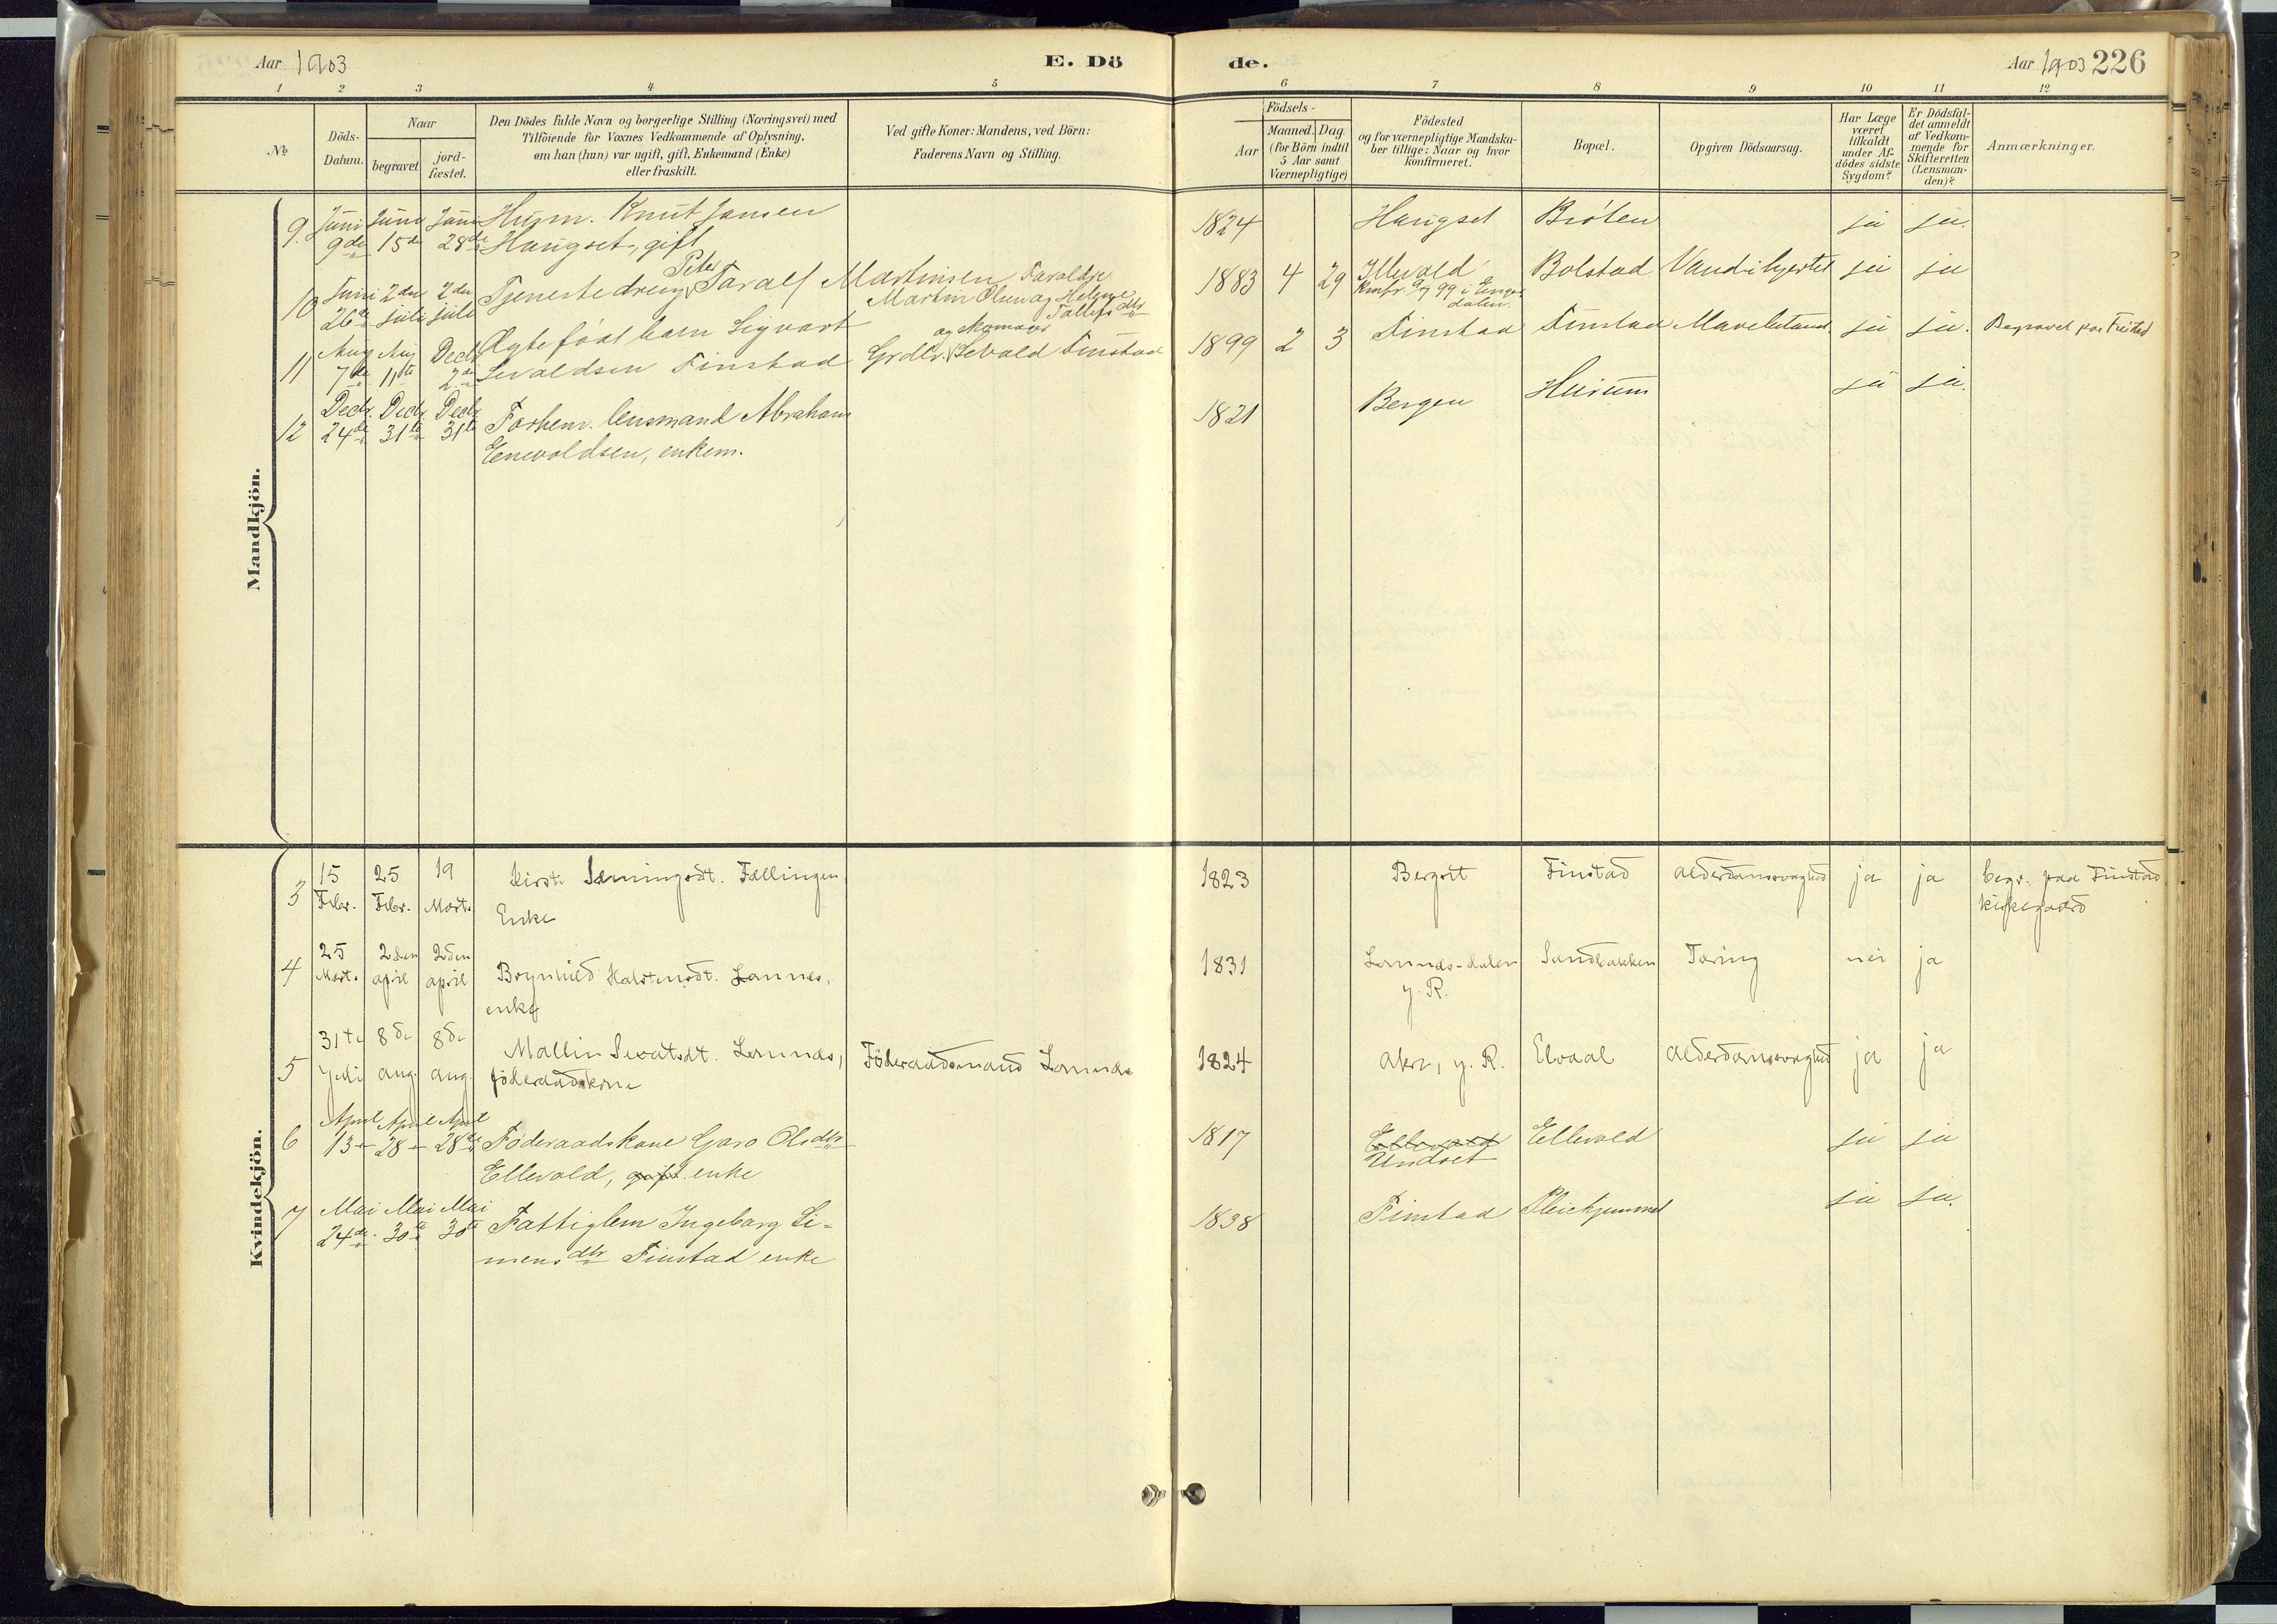 Aar 1903
E. Dö
de.
Aar 1903 226
1 2 3 4 5 6 7 8 9 10 11 12
№
Döds-
Datum.
Naar
begravet
jord-
fæstet.
Den Dödes fulde Navn og borgerlige Stilling (Næringsvei) med
Tilföiende for Voxnes Vedkommende af Oplysning,
om han (hun) var ugift, gift, Enkemand (Enke)
eller fraskilt.
Ved gifte Koner: Mandens, ved Börn:
Faderens Navn og Stilling.
Födsels-
Aar
Maaned. Dag.
(for Börn indtil
5 Aar samt
Værnepligtige)
Födested
og for værnepligtige Mandska-
ber tillige: Naar og hvor
konfirmeret.
Bopæl.
Opgiven Dödsaarsag.
Har Læge
været
tilkaldt
under Af-
dödes sidste
Sygdom?
Er Dödsfal-
det anmeldt
af Vedkom-
mende for
Skifteretten
(Lensman-
den)?
Anmærkninger.
Mandkjön.
9. Juni Juni Juni Husm. Knut Jansen 1824 Haugset Bröten ja ja.
9de 15de 28de Haugset, gift
Peter
10 Juni 2den 2den Tjenestedreng Taralf Martinsen 1883 4 29 Ellevold Bolstad Vand i hjertet ja ja
26de juli juli Martin Olsen og Helene
11 Aug Aug Decbr Ægtefödt barn Sigvart 1899 2 3 Finstad Finstad ja ja. Begravet paa Finstad
7de 11te 2den Sevaldsen Finstad Grdbr. Sevald Finstad
12 Decbr. Decbr. Decbr. Forhenv. lensmand Abraham 1821 Bergen ja ja.
24de 31te 31te Enevoldsen, enkem.
Kvindekjön.
3 15 25 19 Kirsti Sæmingsdt. Fællingen 1823 Bergset Finstad Alderdomssvaghed ja ja begr. paa Finstad
Febr. Febr. Marts Enke kirkegaard
4 25 2den 2den 1831 Lomnes-dalen Sandbakken Tæring nei ja
Marts april april Brynhild Halstensdt. Lomnes, y. R.
enke
5 31te 8de 8de Mallin Sevatsdt. Lomnes, Föderaadsmand Lomnes 1824 Akre, y. R. Elvaal Alderdomssvaghed ja ja
Juli aug. aug. föderaadskone
6 April April April Föderaadskone Garo Olsdtr 1817 Ellevold Ellevold ja ja
13de 28de 28de Ellevold, gift enke Undset
7 Mai Mai Mai Fattiglem Ingeborg Si- 1838 Finstad ja ja.
24de 30te 30te mensdtr Finstad enke